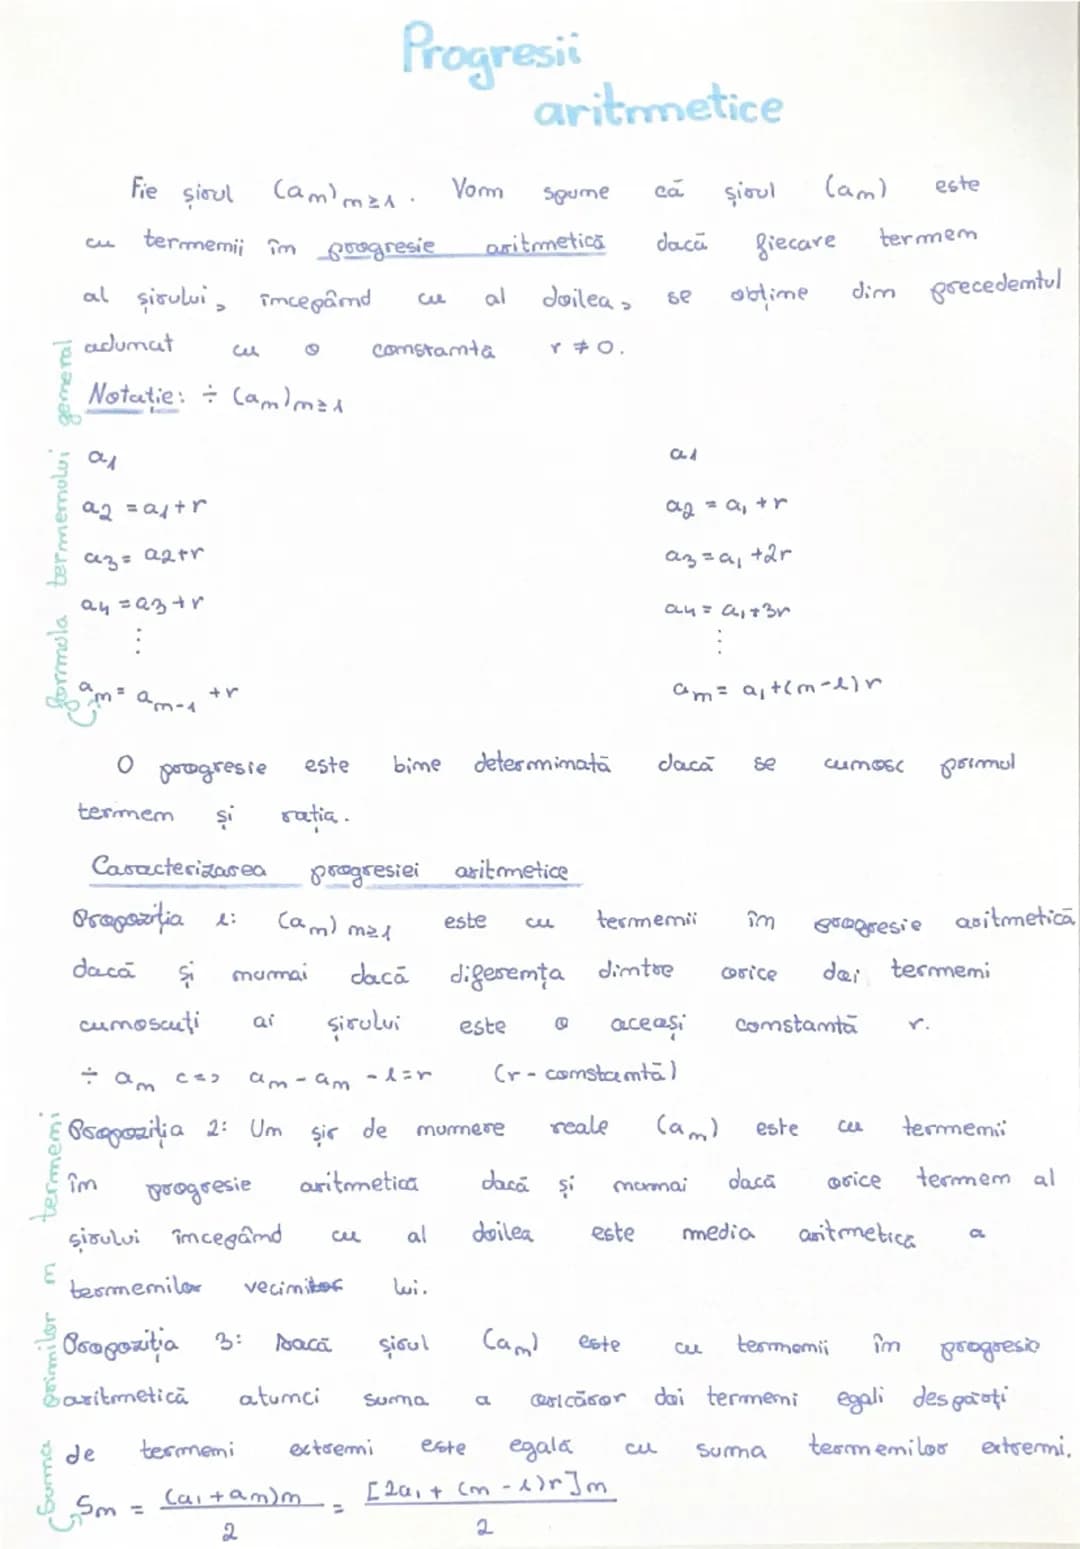 Progresii
aritmetice
Fie șirul (an)n≥1. Vom spune că șirul (an) este
cu termenii în progresie aritmetică dacă fiecare termen
al șirului, începând cu al doilea, se obține din precedentul
adunat cu o constanta r ≠ 0.
Notatie: ÷ (an)n≥1
formula termenului general
a1
a2 = a1+r
a3 = a2+r
a4 = a3+r
⋮
an = an-1 +r
a1
a2 = a1 +r
a3 = a1 +2r
a4 = a1+3r
⋮
an = a1+(n-1)r
O progresie este bine determinată dacă se cunosc primul
termen și rația.
Caracterizarea progresiei aritmetice
Propoziția 1: (an) n≥1 este cu termenii în progresie aritmetică
dacă și numai dacă diferența dintre orice doi termeni
cunoscuți ai șirului este o aceași constantă r.
÷ an <=> an - an -1=r (r - constantă)
Propoziția 2: Un șir de numere reale (an) este cu termenii
în progresie aritmetica dacă și numai dacă orice termen al
șirului începând cu al doilea este media aritmetica a
termenilor vecinilor lui.
Propoziția 3: Dacă șirul (an) este cu termenii în progresie
aritmetică atunci suma a oricăror doi termeni egali despărți
de termeni extremi este egală cu suma termenilor extremi.
Suma primilor n termeni
Sn = (a1+an)n / 2 = [2a1 + (n-1)r]n / 2